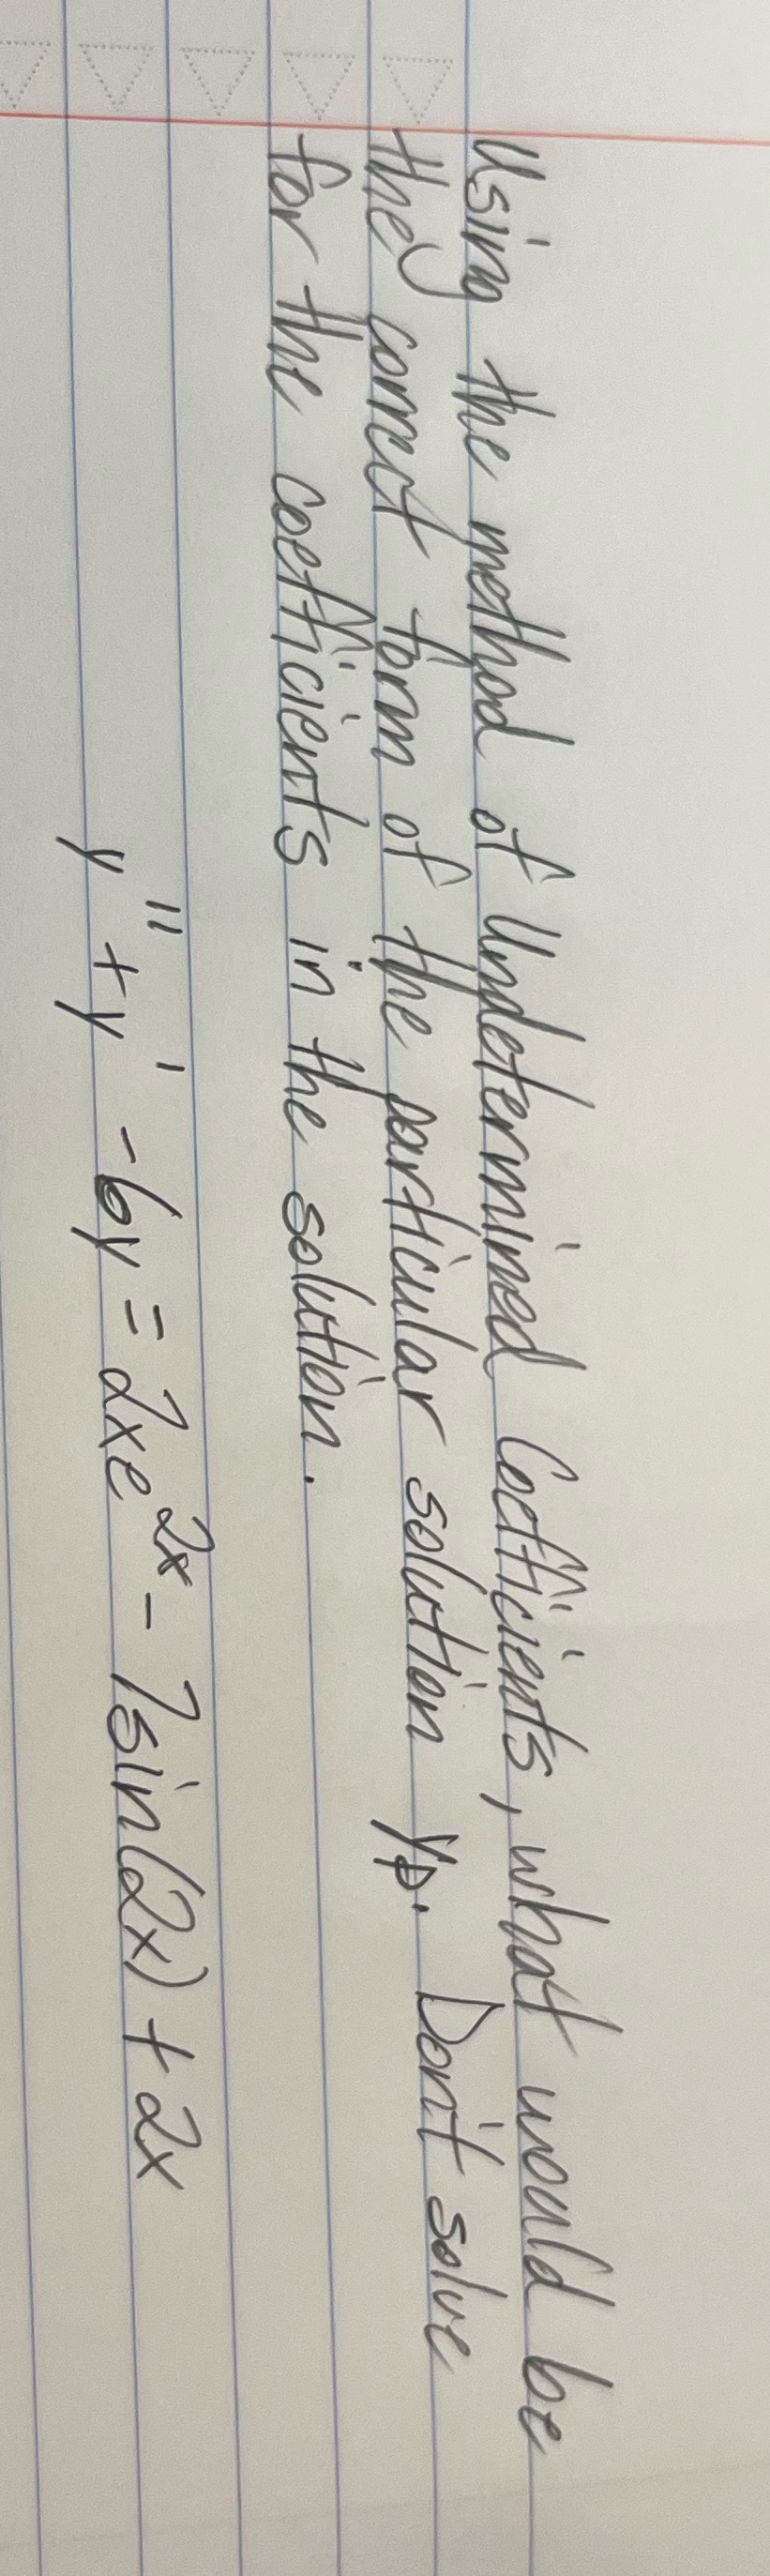 Using the method of Undetermined Coefficients, what would be
the correct form of the particular solution yp. Don't solve
for the coefficients in the solution.
y" + y' - 6y = 2xe^2x - 7sin(2x) + 2x